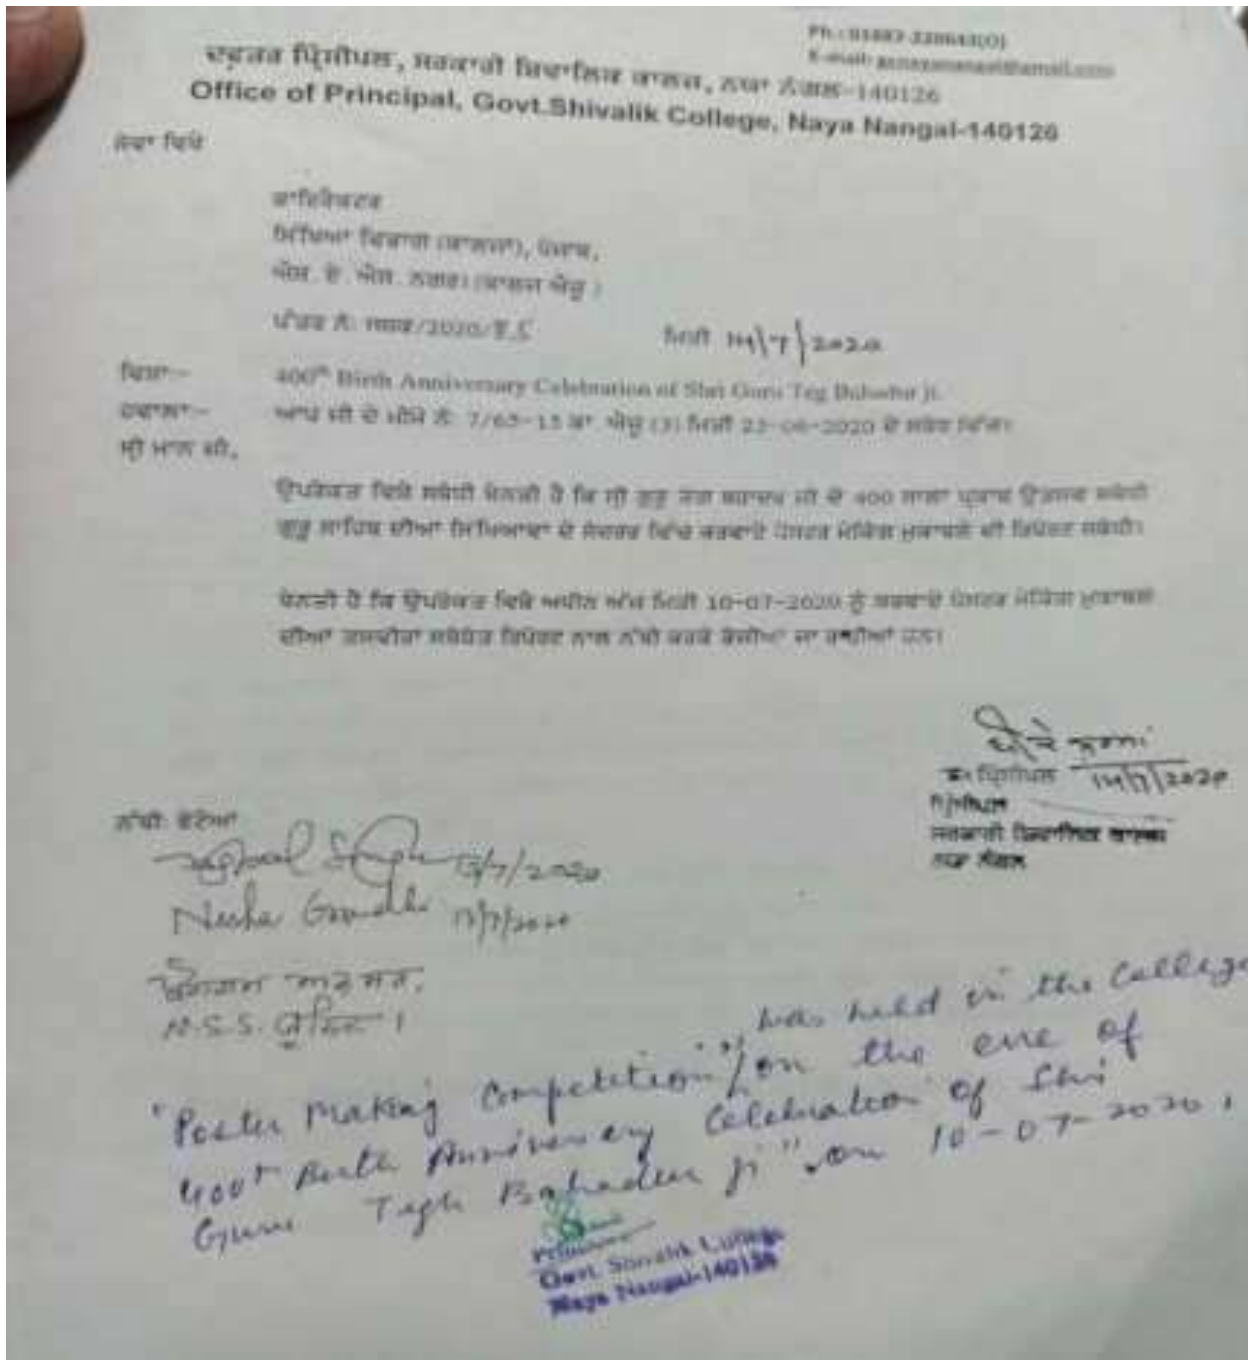 Ph.: 01887-220643(O)
E-mail:
ਦਫ਼ਤਰ ਪ੍ਰਿੰਸੀਪਲ, ਸਰਕਾਰੀ ਸ਼ਿਵਾਲਿਕ ਕਾਲਜ, ਨਯਾ ਨੰਗਲ-140126
Office of Principal, Govt.Shivalik College, Naya Nangal-140126
ਸੇਵਾ ਵਿਖੇ
ਡਾਇਰੈਕਟਰ
ਸਿੱਖਿਆ ਵਿਭਾਗ (ਕਾਲਜਾਂ), ਪੰਜਾਬ,
ਐਸ. ਏ. ਐਸ. ਨਗਰ। (ਕਾਲਜ ਐਜੂ)
ਪੱਤਰ ਨੰ: /2020/ ਮਿਤੀ 14/7/2020
ਵਿਸ਼ਾ:- 400th Birth Anniversary Celebration of Shri Guru Teg Bahadur ji.
ਹਵਾਲਾ:- ਆਪ ਜੀ ਦੇ ਮੀਮੋ ਨੰ: 7/65-15 ਕਾ. ਐਜੂ (3) ਮਿਤੀ 23-06-2020 ਦੇ ਸਬੰਧ ਵਿੱਚ।
ਸ੍ਰੀ ਮਾਨ ਜੀ,
ਉਪਰੋਕਤ ਵਿਸ਼ੇ ਸਬੰਧੀ ਬੇਨਤੀ ਹੈ ਕਿ ਸ੍ਰੀ ਗੁਰੂ ਤੇਗ ਬਹਾਦਰ ਜੀ ਦੇ 400 ਸਾਲਾ ਪ੍ਰਕਾਸ਼ ਉਤਸਵ ਸਬੰਧੀ
ਗੁਰੂ ਸਾਹਿਬ ਦੀਆਂ ਸਿੱਖਿਆਵਾਂ ਦੇ ਸੰਦਰਭ ਵਿੱਚ ਕਰਵਾਏ ਪੋਸਟਰ ਮੇਕਿੰਗ ਮੁਕਾਬਲੇ ਦੀ ਰਿਪੋਰਟ ਸਬੰਧੀ।
ਬੇਨਤੀ ਹੈ ਕਿ ਉਪਰੋਕਤ ਵਿਸ਼ੇ ਅਧੀਨ ਅੱਜ ਮਿਤੀ 10-07-2020 ਨੂੰ ਕਰਵਾਏ ਪੋਸਟਰ ਮੇਕਿੰਗ ਮੁਕਾਬਲੇ
ਦੀਆਂ ਤਸਵੀਰਾਂ ਸਬੰਧਤ ਰਿਪੋਰਟ ਨਾਲ ਨੱਥੀ ਕਰਕੇ ਭੇਜੀਆਂ ਜਾ ਰਹੀਆਂ ਹਨ।
ਪ੍ਰਿੰਸੀਪਲ 14/7/2020
ਪ੍ਰਿੰਸੀਪਲ
ਸਰਕਾਰੀ ਸ਼ਿਵਾਲਿਕ ਕਾਲਜ
ਨਯਾ ਨੰਗਲ
ਨੱਥੀ: ਫੋਟੋਆਂ
Singh 13/7/2020
Nisha Gandhi 13/7/2020
ਪ੍ਰੋਗਰਾਮ ਅਫ਼ਸਰ,
N.S.S. ਯੂਨਿਟ।
"Poster Making Competition" was held in the College
on the eve of
400th Birth Anniversary Celebration of Shri
Guru Tegh Bahadur ji" on 10-07-2020.
Principal
Govt. Shivalik College
Naya Nangal-140126